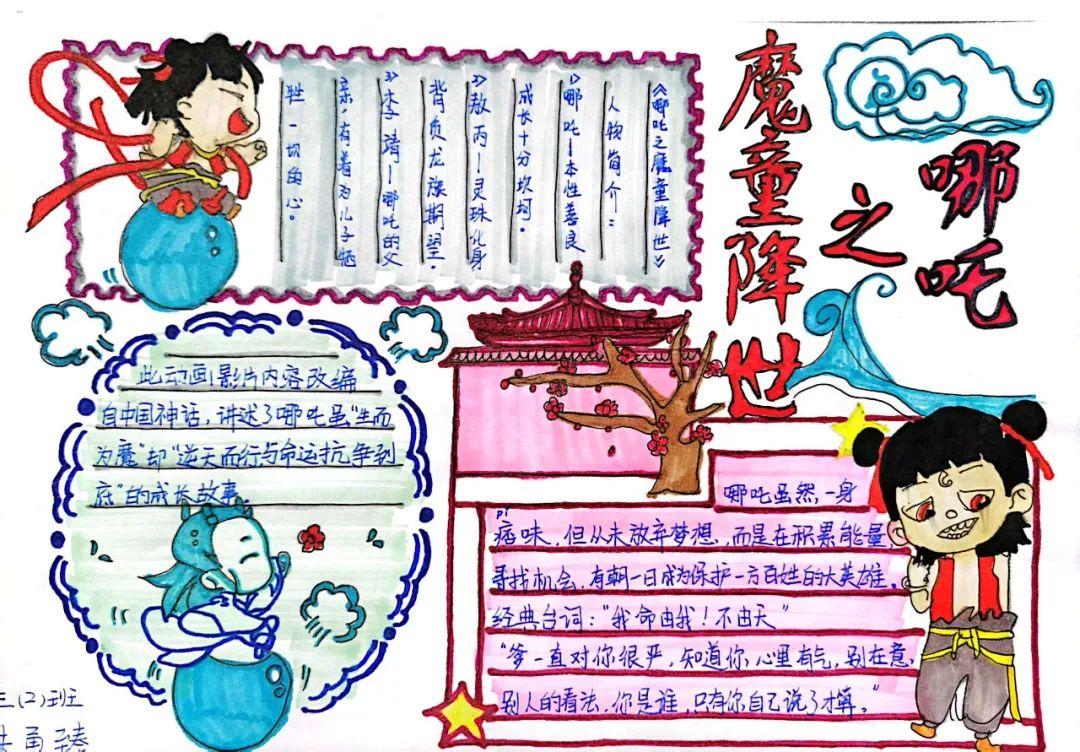 哪吒
之
魔童降世
《哪吒之魔童降世》
人物简介：
》哪吒—本性善良
成长十分坎坷。
》敖丙—灵珠化身
背负龙族期望。
》李靖—哪吒的父
亲，有着为儿子牺
牲一切的心。
此动画影片内容改编
自中国神话，讲述了哪吒虽“生而
为魔”却“逆天而行与命运抗争到
底”的成长故事
哪吒虽然一身
pi
痞味，但从未放弃梦想，而是在积累能量，
寻找机会，有朝一日成为保护一方百姓的大英雄。
经典台词：“我命由我！不由天”
“爹一直对你很严，知道你心里有气，别在意，
别人的看法，你是谁，只有你自己说了才算。”
三(2)班